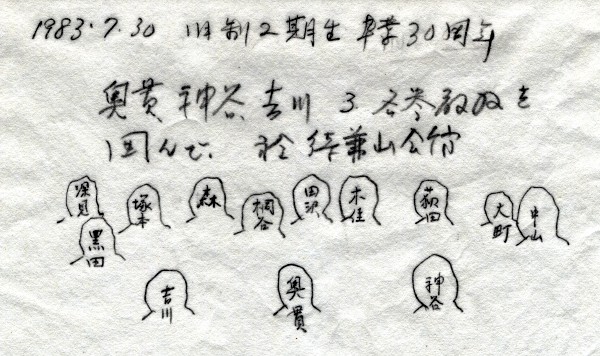 1983.7.30 旧制2期生 卒業30周年
奥貫 神谷 吉川 3名誉教授を
囲んで 於 待兼山会館
深見 塚本 森 桐谷 田沢 木佳 荻田 大町 中山
黒田
吉川 奥貫 神谷